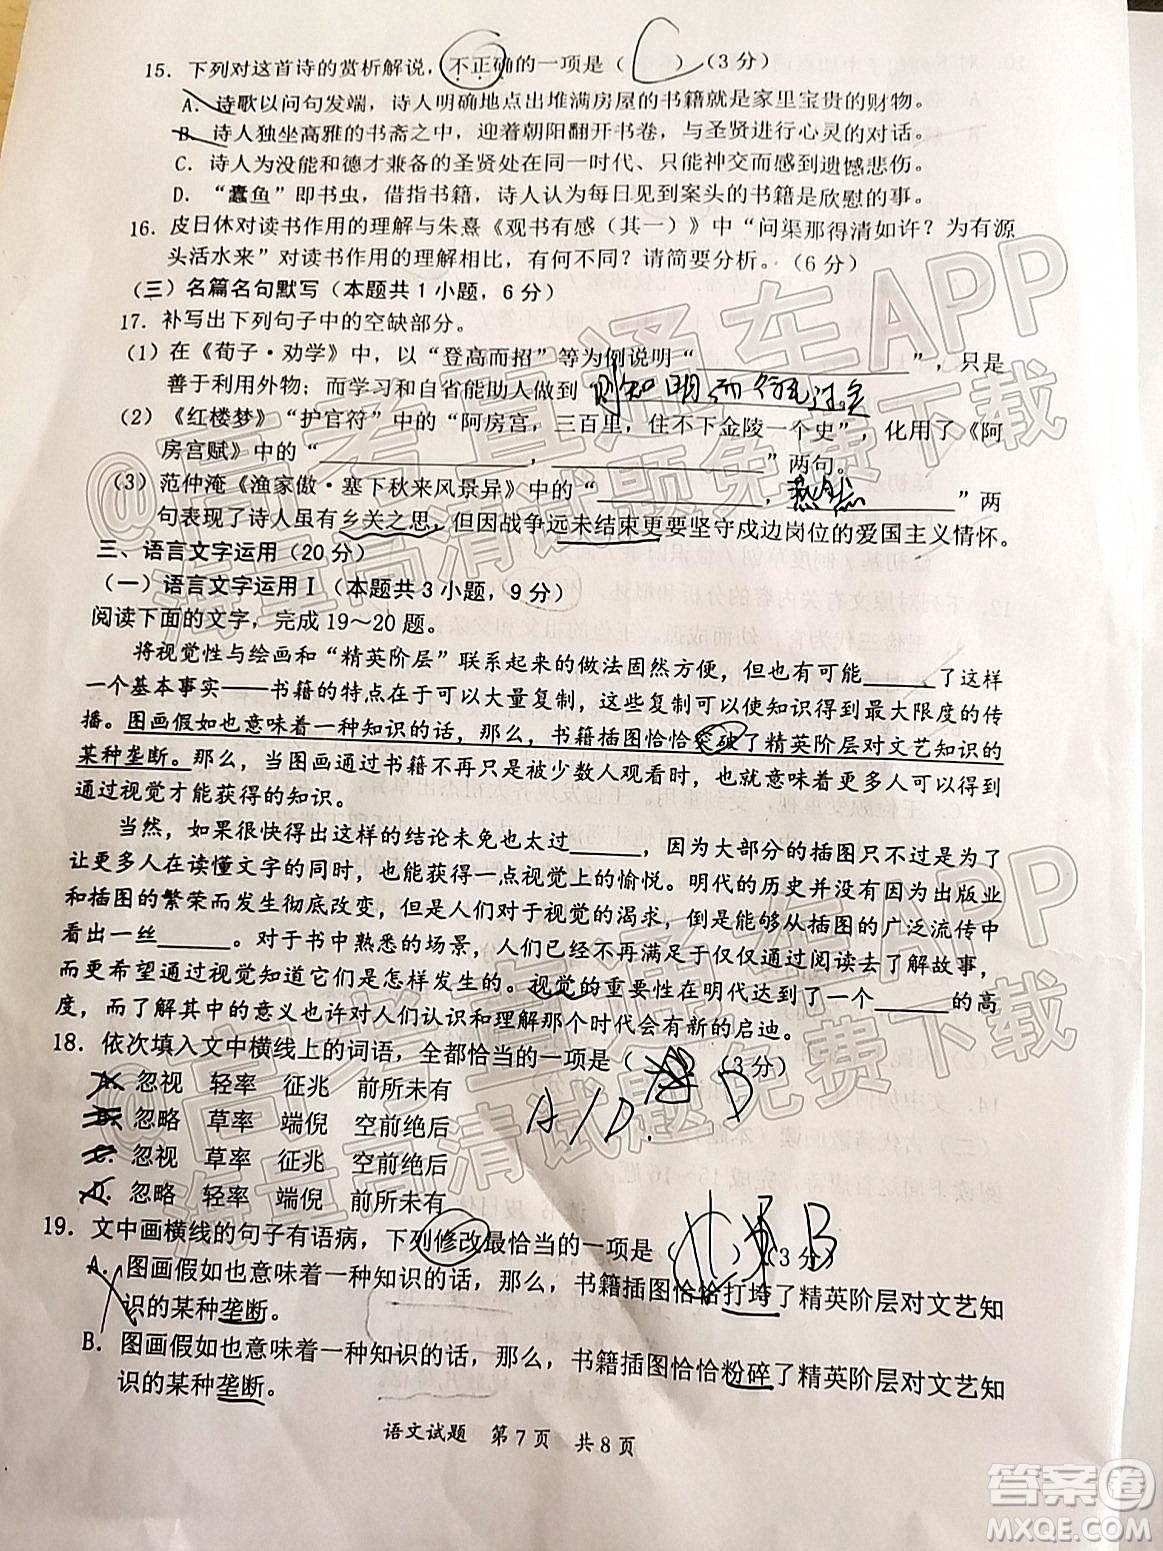 15. 下列对这首诗的赏析解说，不正确的一项是（C）（3分）
A. 诗歌以问句发端，诗人明确地点出堆满房屋的书籍就是家里宝贵的财物。
B. 诗人独坐高雅的书斋之中，迎着朝阳翻开书卷，与圣贤进行心灵的对话。
C. 诗人为没能和德才兼备的圣贤处在同一时代、只能神交而感到遗憾悲伤。
D. “蠹鱼”即书虫，借指书籍，诗人认为每日见到案头的书籍是欣慰的事。
16. 皮日休对读书作用的理解与朱熹《观书有感（其一）》中“问渠那得清如许？为有源
头活水来”对读书作用的理解相比，有何不同？请简要分析。（6分）
（三）名篇名句默写（本题共1小题，6分）
17. 补写出下列句子中的空缺部分。
（1）在《荀子·劝学》中，以“登高而招”等为例说明“＿＿＿＿＿＿”，只是
善于利用外物；而学习和自省能助人做到“则知明而行无过矣
（2）《红楼梦》“护官符”中的“阿房宫，三百里，住不下金陵一个史”，化用了《阿
房宫赋》中的“＿＿＿＿＿＿，＿＿＿＿＿＿”两句。
（3）范仲淹《渔家傲·塞下秋来风景异》中的“＿＿＿＿＿＿，燕然＿＿＿”两
句表现了诗人虽有乡关之思，但因战争远未结束更要坚守戍边岗位的爱国主义情怀。
三、语言文字运用（20分）
（一）语言文字运用Ⅰ（本题共3小题，9分）
阅读下面的文字，完成19～20题。
将视觉性与绘画和“精英阶层”联系起来的做法固然方便，但也有可能＿＿＿了这样
一个基本事实——书籍的特点在于可以大量复制，这些复制可以使知识得到最大限度的传
播。图画假如也意味着一种知识的话，那么，书籍插图恰恰突破了精英阶层对文艺知识的
某种垄断。那么，当图画通过书籍不再只是被少数人观看时，也就意味着更多人可以得到
通过视觉才能获得的知识。
当然，如果很快得出这样的结论未免也太过＿＿＿，因为大部分的插图只不过是
让更多人在读懂文字的同时，也能获得一点视觉上的愉悦。明代的历史并没有因为出版业
和插图的繁荣而发生彻底改变，但是人们对于视觉的渴求，倒是可以从插图的广泛流传中
看出一丝＿＿＿。对于书中熟悉的场景，人们已经不再满足于仅仅通过阅读来了解故事，
而更希望通过视觉知道它们是怎样发生的。视觉的重要性在明代达到了一个＿＿＿的高
度，而了解其中的意义可能会对人们认识和理解那个时代会有新的启迪。
18. 依次填入文中横线上的词语，全都恰当的一项是（ ）（3分）
A. 忽视 轻率 征兆 前所未有
B. 忽略 草率 端倪 空前绝后
C. 忽视 草率 征兆 空前绝后
D. 忽略 轻率 端倪 前所未有
A/D. D
19. 文中画横线的句子有语病，下列修改最恰当的一项是（ ）（3分）
B
A. 图画假如也意味着一种知识的话，那么，书籍插图恰恰打垮了精英阶层对文艺知
识的某种垄断。
B. 图画假如也意味着一种知识的话，那么，书籍插图恰恰粉碎了精英阶层对文艺知
识的某种垄断。
语文试题 第7页 共8页
@高考直通车APP
海量高清试题免费下载
@高考直通车APP
海量高清试题免费下载
答案卷
MXQE.COM